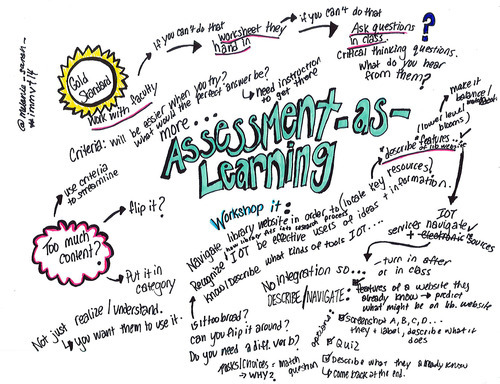 @melanie_parlette_
#immvt14
Gold
Standard
Work with faculty
if you can't do that
worksheet they
hand in
if you can't do that
Ask questions
in class.
?
Critical thinking questions.
What do you hear
from them?
Criteria: will be easier when you try?
what would the perfect answer be?
more...
need instruction
to get there
Assessment-as-
Learning
Too much
content?
use criteria
to streamline
flip it?
Put it in
category
Not just realize / understand.
you want them to use it.
Workshop it:
Navigate library website in order to (locate key
resources)
Recognize
IOT be effective users of ideas + information.
Know/Describe what kinds of tools IOT....
describe features...
of lib website
(lower level
blooms)
make it
balance/
IOT
navigate
services + electronic sources
No integration so...
DESCRIBE/NAVIGATE:
turn in after
or in class
features of a website they
already know → predict
what might be on lib. website
options:
screenshot A, B, C, D...
they label, describe what it
does
Quiz
Describe what they already know
come back at the end.
Is it too broad?
Can you flip it around?
Do you need a diff. verb?
tasks/choices = match
question
→ why?